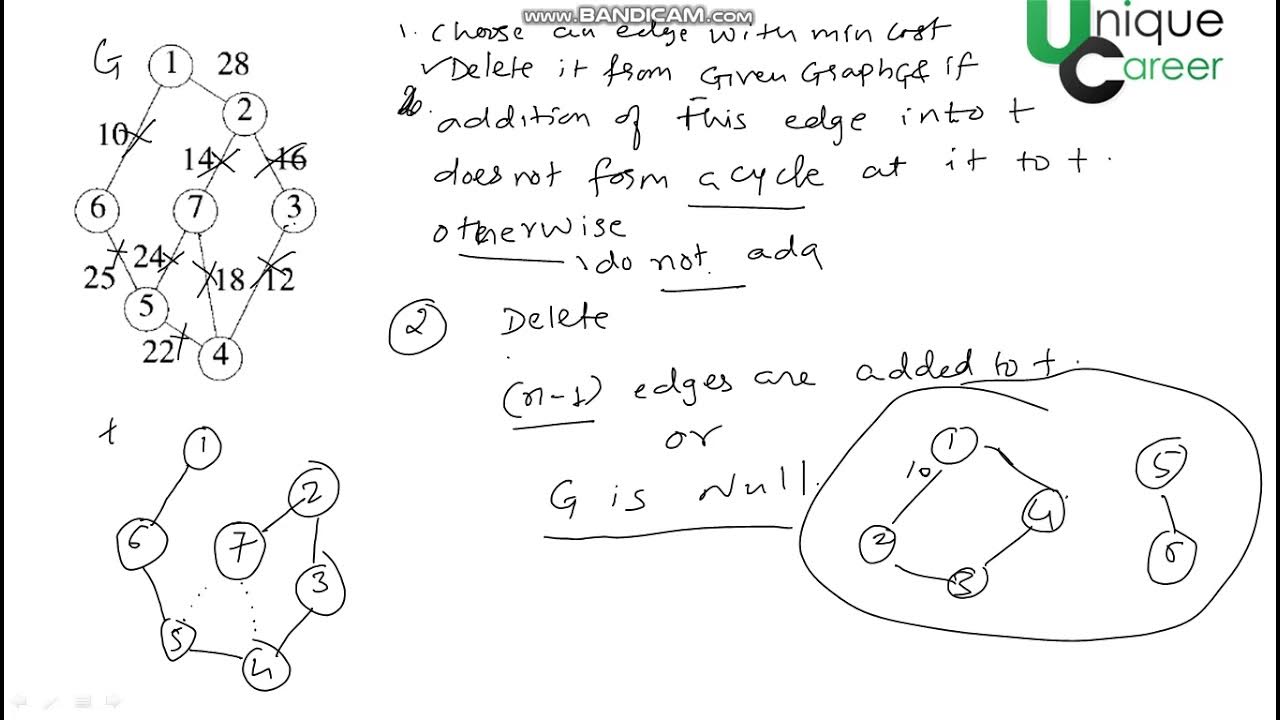 www.BANDICAM.com
Unique
Career
1. choose an edge with min cost
Delete it from Given Graph G & if
addition of This edge into t
does not form a cycle at it to t.
otherwise
do not. add
2 Delete
(n-1) edges are added to t.
or
G is Null.
G
1 28
2
10
14 16
6 7 3
24
25 18 12
5
22 4
t
1
2
6 7
3
5
4
1
10
5
4
2
3
6